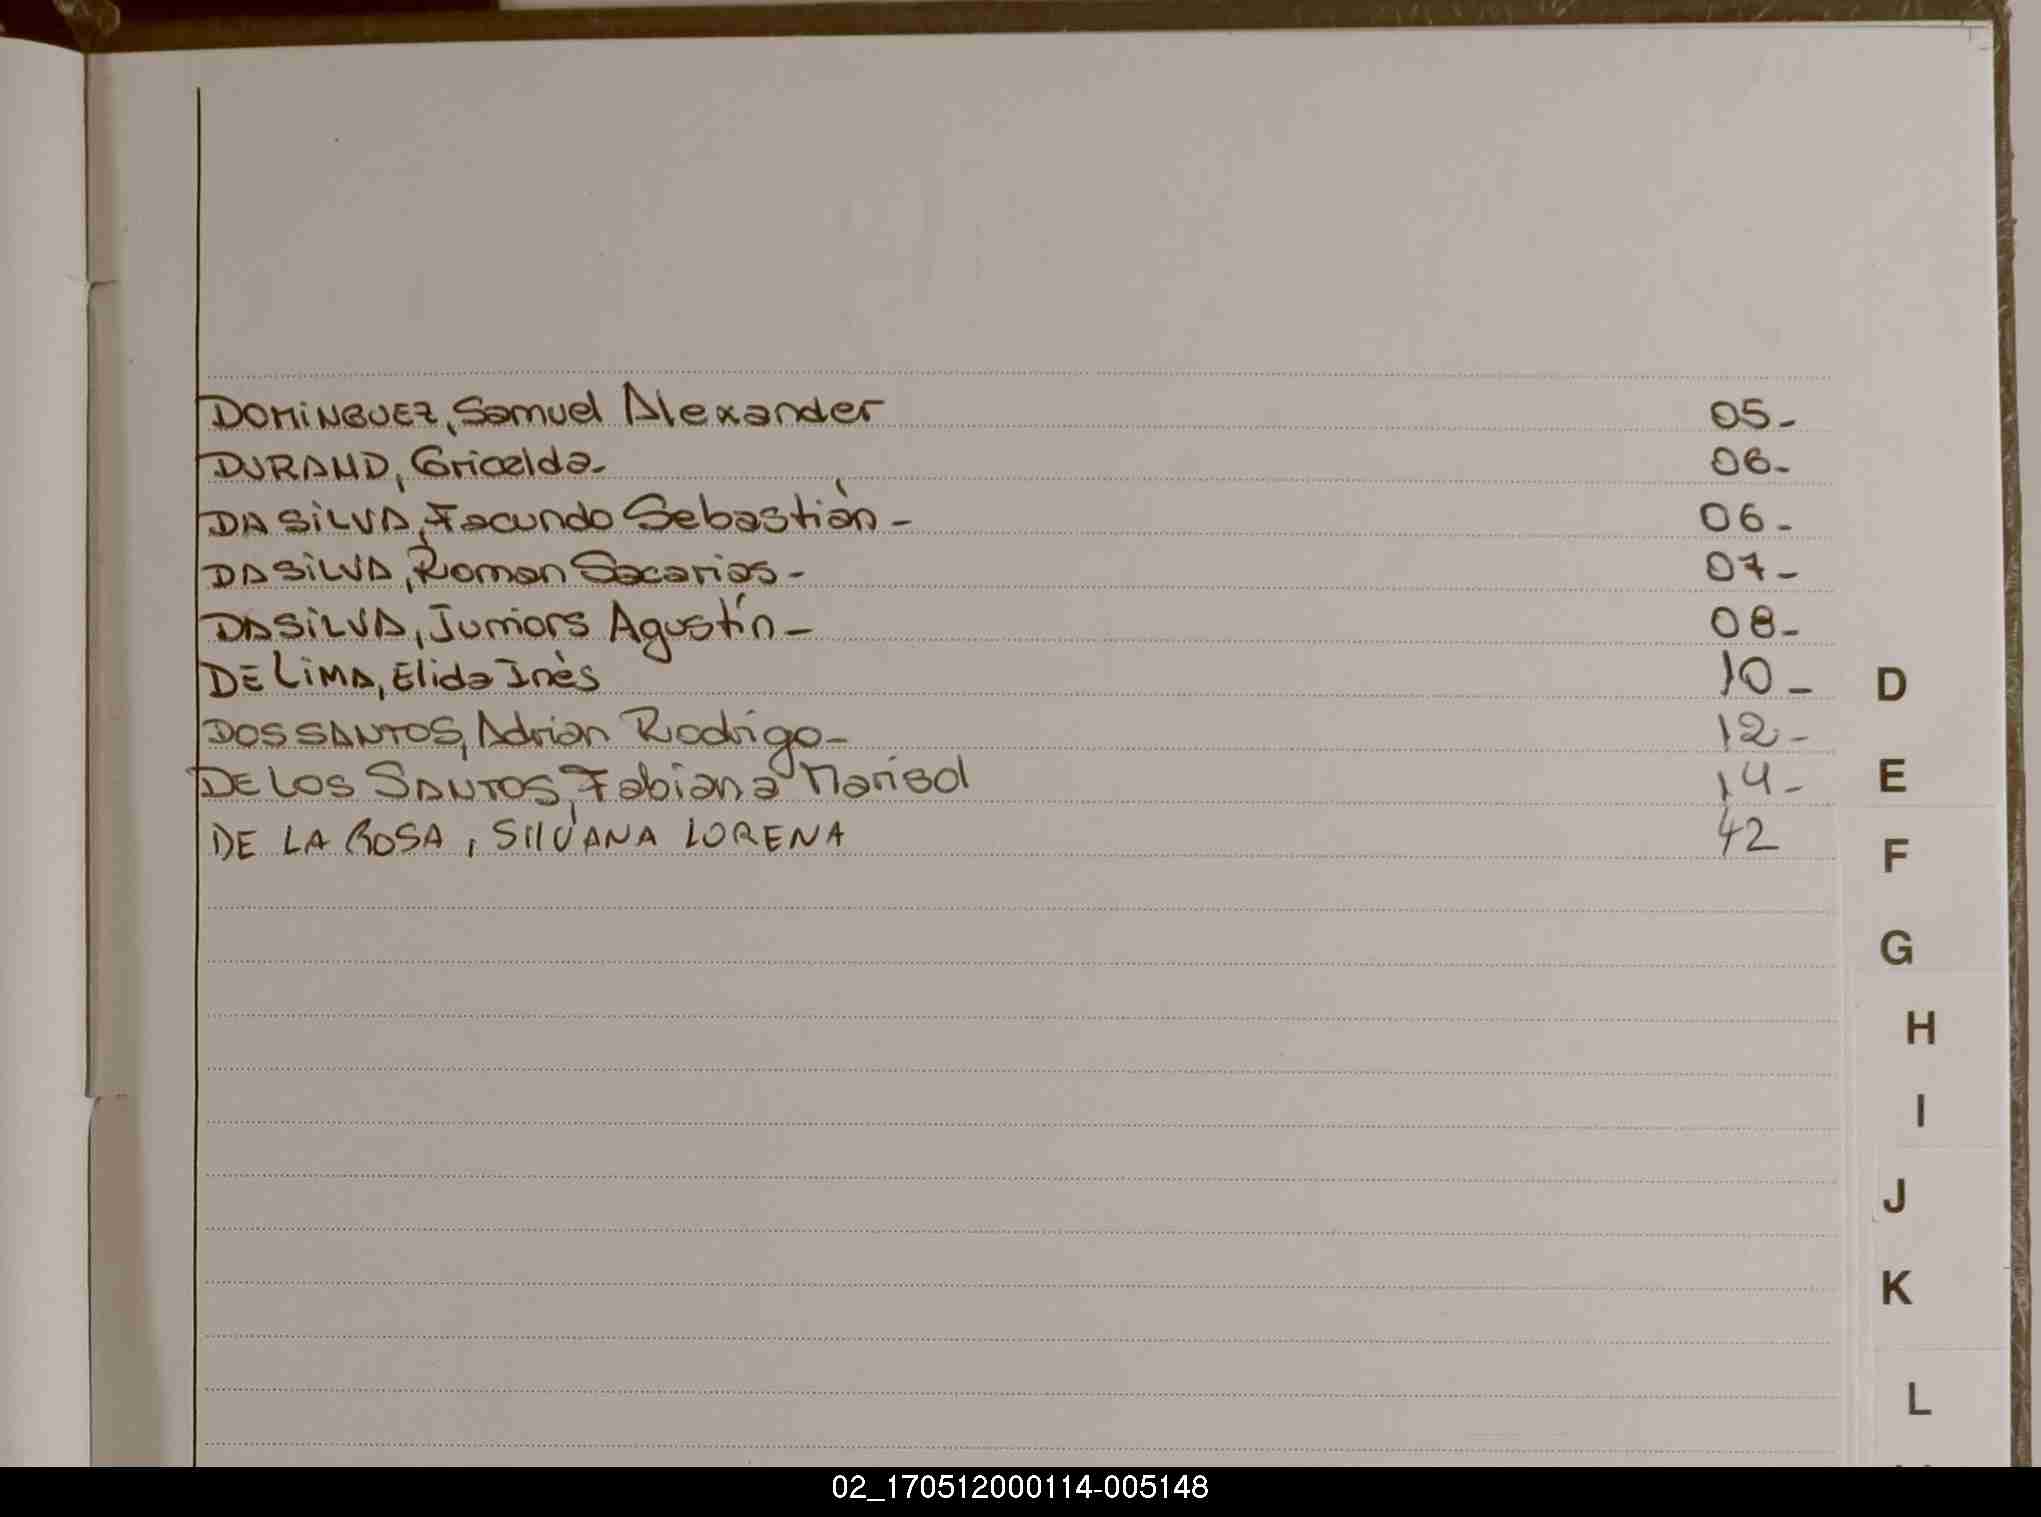 DOMINGUEZ, Samuel Alexander 05-
DURAND, Gricelda- 06-
DA SILVA, Facundo Sebastián- 06-
DA SILVA, Roman Sacarias- 07-
DA SILVA, Juniors Agustín- 08-
DE LIMA, Elida Inès 10-
DOS SANTOS, Adrian Rodrigo- 12-
DE LOS SANTOS, Fabiana Marisol 14-
DE LA ROSA, SILVANA LORENA 42
D
E
F
G
H
I
J
K
L
02_170512000114-005148